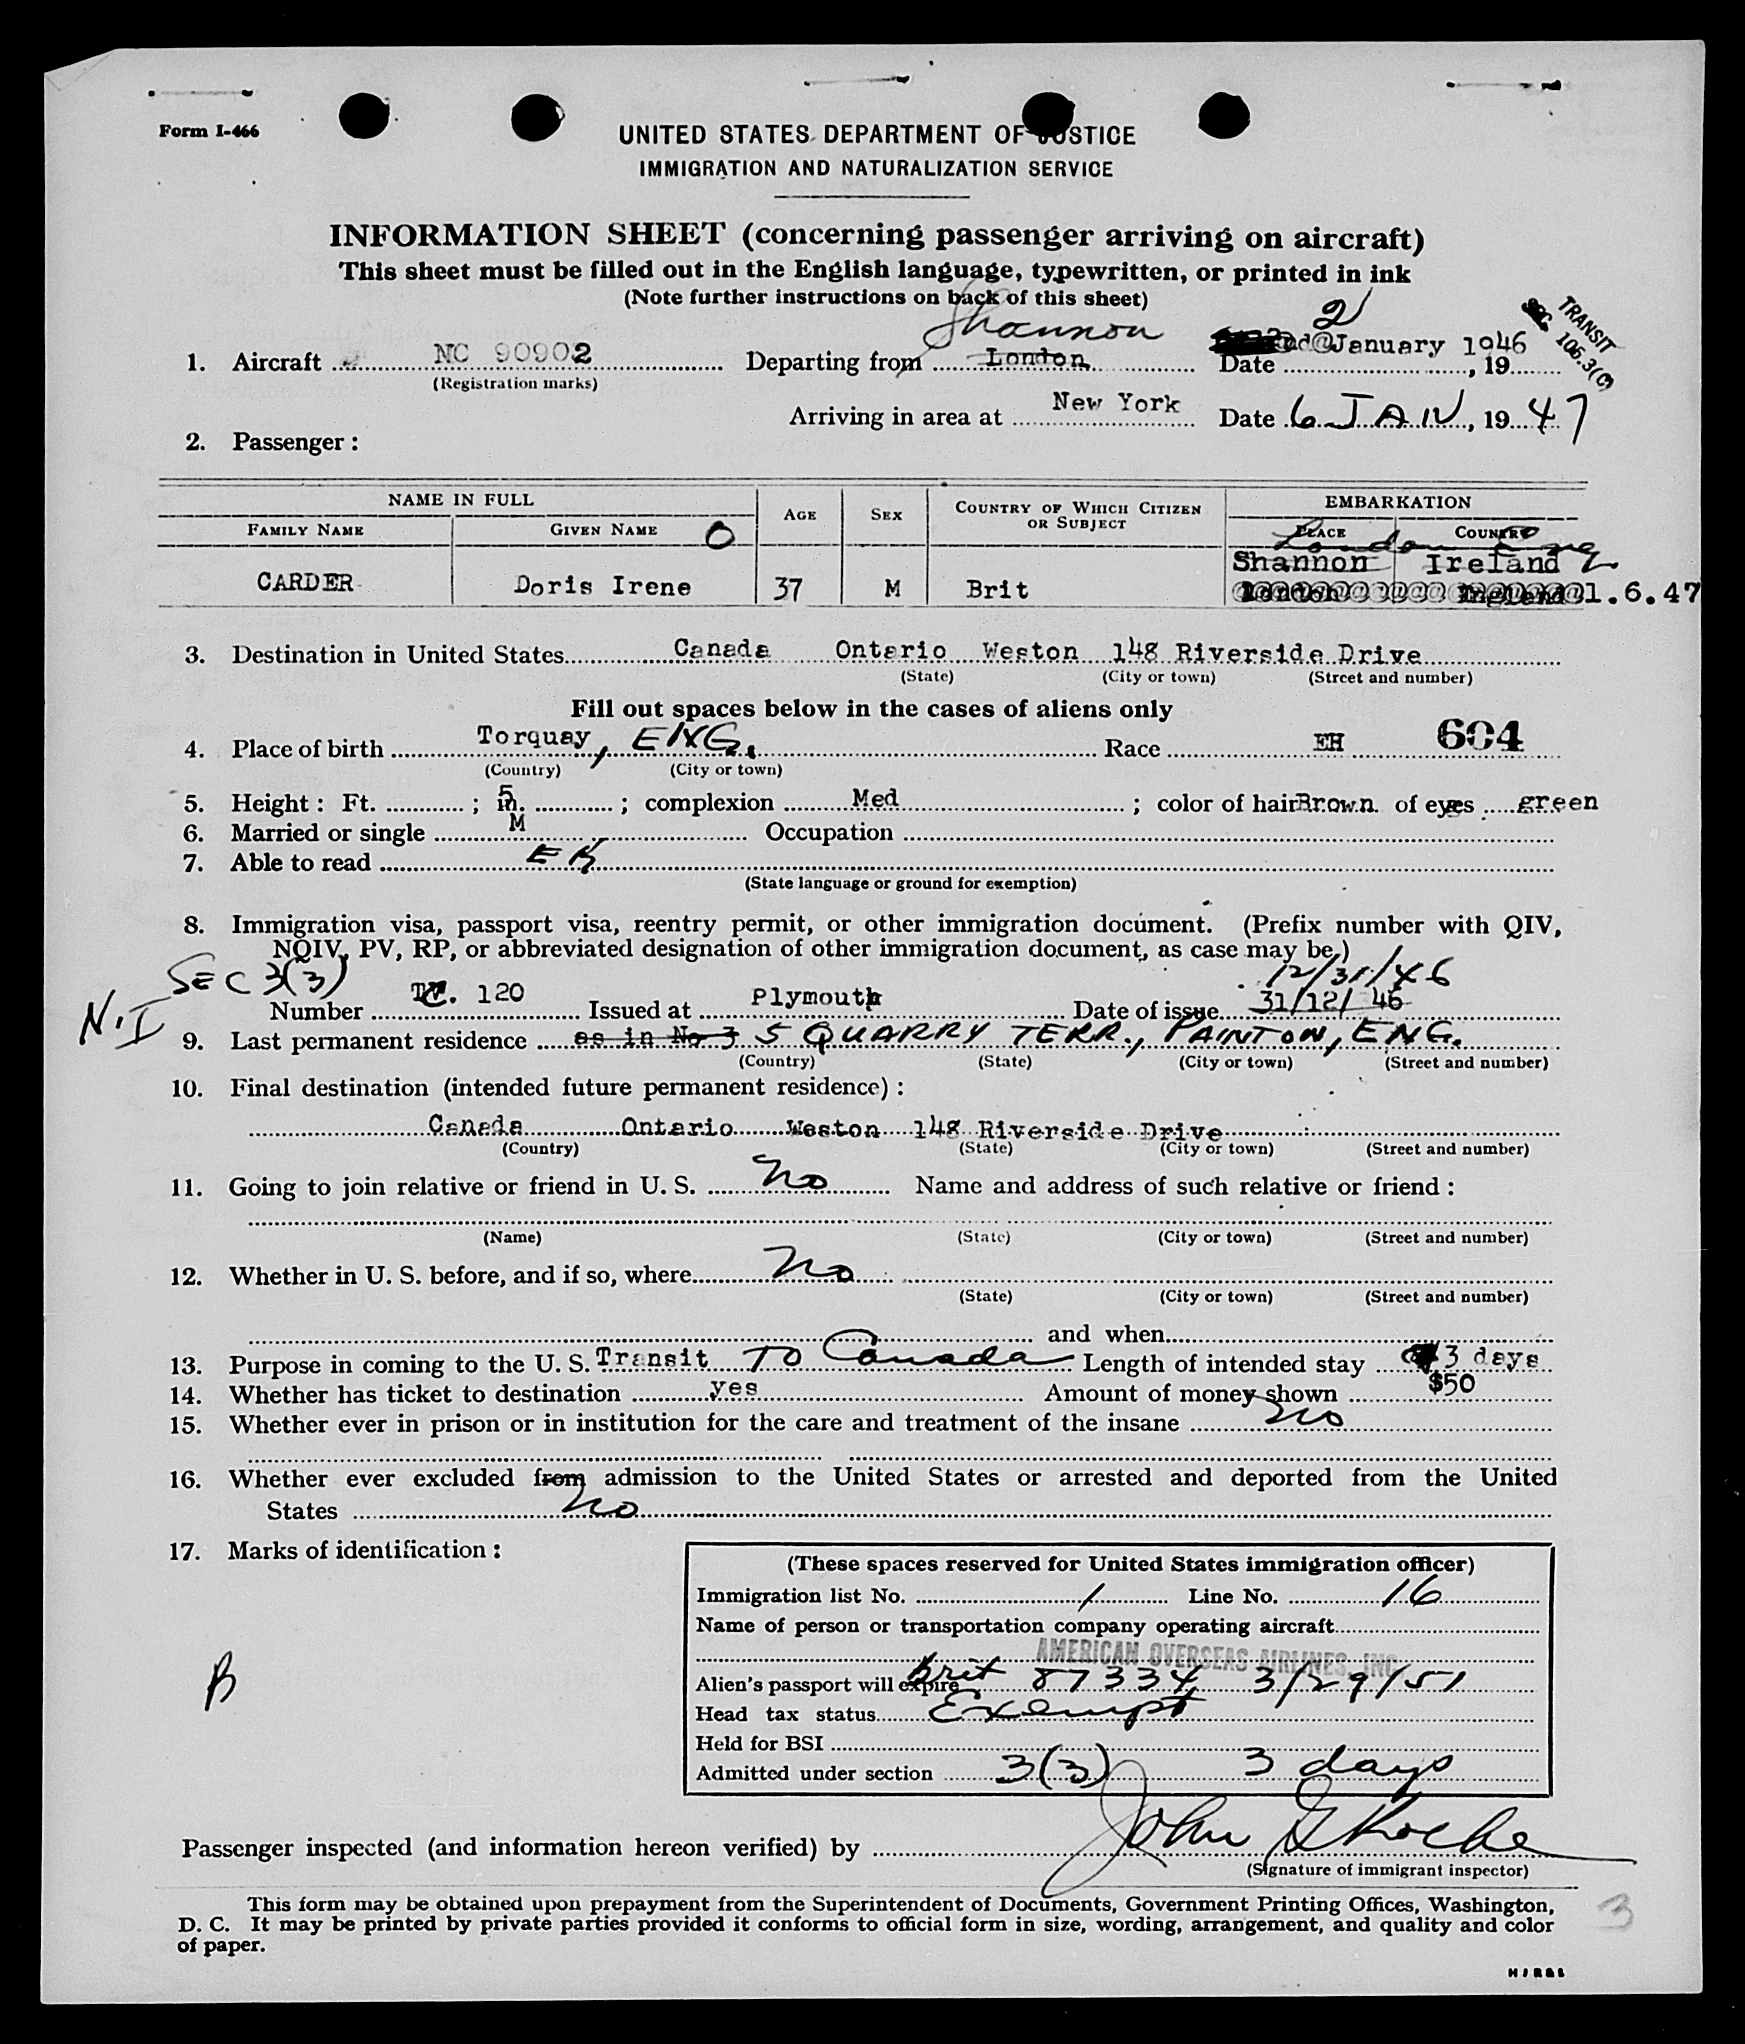 Form I-466
UNITED STATES DEPARTMENT OF JUSTICE
IMMIGRATION AND NATURALIZATION SERVICE
INFORMATION SHEET (concerning passenger arriving on aircraft)
This sheet must be filled out in the English language, typewritten, or printed in ink
(Note further instructions on back of this sheet)
TRANSIT
SEC 106.3(C)
Shannon 2
1. Aircraft NC 90902 Departing from London Date January 1946, 19
(Registration marks)
Arriving in area at New York Date 6 JAN, 19 47
2. Passenger :
NAME IN FULL AGE SEX COUNTRY OF WHICH CITIZEN OR SUBJECT EMBARKATION
FAMILY NAME GIVEN NAME O PLACE COUNTRY
London Eng
Shannon Ireland
CARDER Doris Irene 37 M Brit London England 1.6.47
3. Destination in United States Canada Ontario Weston 148 Riverside Drive
(State) (City or town) (Street and number)
Fill out spaces below in the cases of aliens only
4. Place of birth Torquay, ENG. Race EH 604
(Country) (City or town)
5. Height : Ft. ; 5 in. ; complexion Med ; color of hair Brown of eyes green
6. Married or single M Occupation
7. Able to read
(State language or ground for exemption)
8. Immigration visa, passport visa, reentry permit, or other immigration document. (Prefix number with QIV,
NQIV, PV, RP, or abbreviated designation of other immigration document, as case may be.)
SEC 3(3) 12/31/46
N.I Number 120 Issued at Plymouth Date of issue 31/12/ 46
9. Last permanent residence as in No 3 5 QUARRY TERR., PAINTON, ENG.
(Country) (State) (City or town) (Street and number)
10. Final destination (intended future permanent residence) :
Canada Ontario Weston 148 Riverside Drive
(Country) (State) (City or town) (Street and number)
11. Going to join relative or friend in U. S. No Name and address of such relative or friend :
(Name) (State) (City or town) (Street and number)
12. Whether in U. S. before, and if so, where No
(State) (City or town) (Street and number)
and when
13. Purpose in coming to the U. S. Transit TO Canada Length of intended stay 3 days
14. Whether has ticket to destination yes Amount of money shown $50
15. Whether ever in prison or in institution for the care and treatment of the insane no
16. Whether ever excluded from admission to the United States or arrested and deported from the United
States no
17. Marks of identification :
(These spaces reserved for United States immigration officer)
Immigration list No. 1 Line No. 16
Name of person or transportation company operating aircraft
AMERICAN OVERSEAS AIRLINES, INC.
Alien's passport will expire Brit 87334 3/29/51
Head tax status Exempt
Held for BSI
Admitted under section 3(3) 3 days
B
Passenger inspected (and information hereon verified) by John
(Signature of immigrant inspector)
This form may be obtained upon prepayment from the Superintendent of Documents, Government Printing Offices, Washington,
D. C. It may be printed by private parties provided it conforms to official form in size, wording, arrangement, and quality and color
of paper.
3